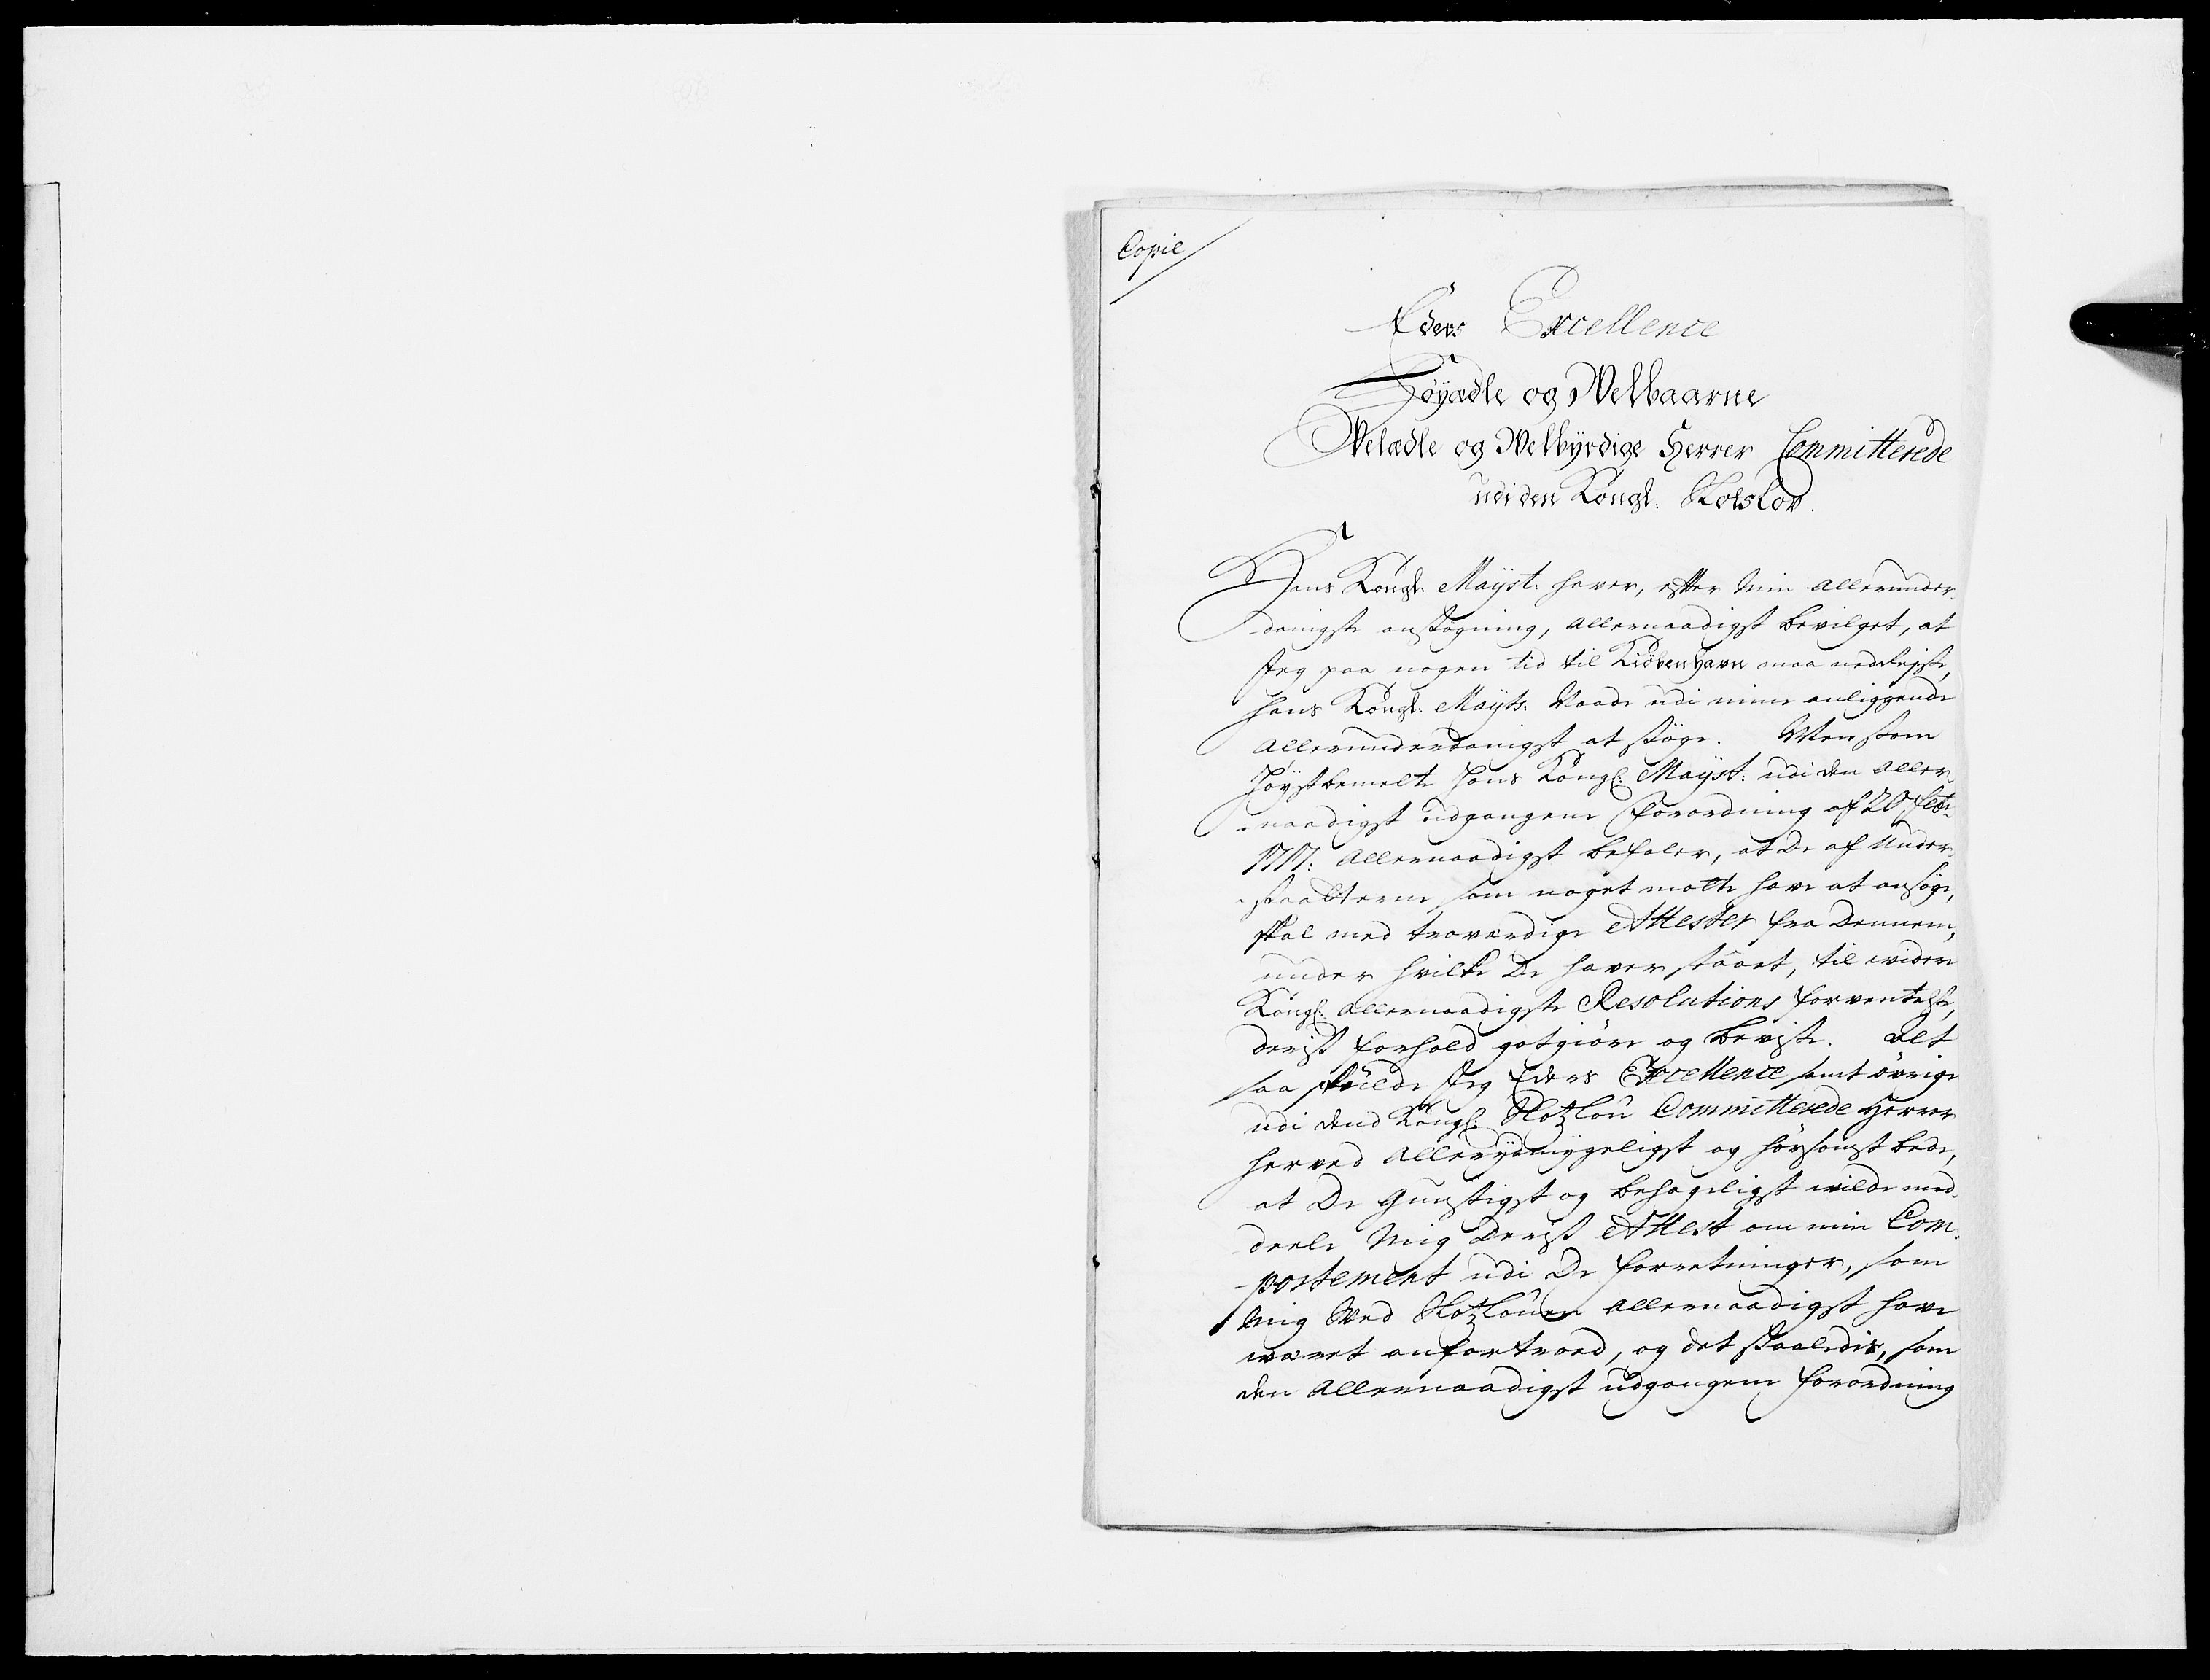 Copie
Eders Excellence
Höyædle og Welbaarne
Welædle og Welbÿrdige Herrer Committerede
udi den Kongl: Slotslov.
Hans Kongl: Maÿst: haver, efter Min allerunder-
danigste ansøgning, allernaadigst bevilget, at
Jeg paa nogen tid til Kiöbenhavn maa nedrejse,
hans Kongl: Maÿts: Naade udi mine anliggende
allerunderdanigst at søge. Men som
Höystbemelte Hans Kongl: Maÿst: udi den aller-
naadigst udgangene forordning af 20 febr:
1717: allernaadigst befaler, at De af Under-
saatterne som noget motte have at ansöge,
skal med troværdige Attester fra Dennem,
under hvilke De haver staaet, til wider
Kongl: allernaadigste Resolutions forventelse,
deris forhold gotgiöre og beviise. Alt
saa skulde Jeg Eders Excellence samt övrige
udi dend Kongl: Slotzlou Committerede Herrer
herved allerÿdmygeligst og hörsomst bede,
at De gunstigst og behageligst wilde med-
deele Mig Deris Attest om min Com-
portement udi De forretninger, som
Mig Wed Slotzlouen allernaadigst have
wæret anfortroed, og det saaledis, som
den allernaadigst udgangene forordning